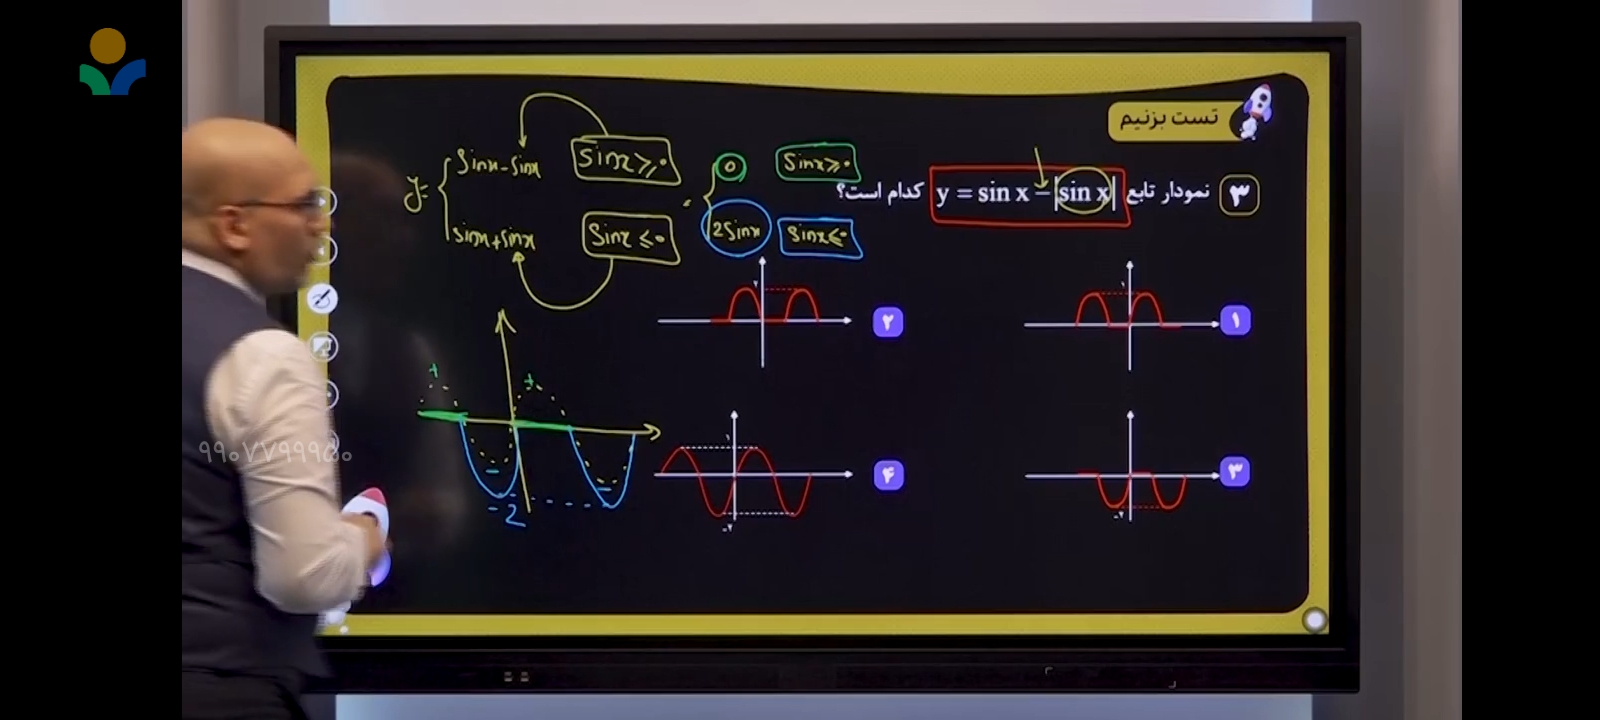 تست بزنیم
۳ نمودار تابع y = sin x − |sin x| کدام است؟
y= { sinx - sinx   sinx ≥ 0 = { 0   sinx ≥ 0
sinx + sinx   sinx ≤ 0   2sinx   sinx ≤ 0
۱
۱
۲
۲
۳
-۲
۴
۱
-۲
+ +
- -
-2
۹۹۰۷۷۹۹۹۵۰